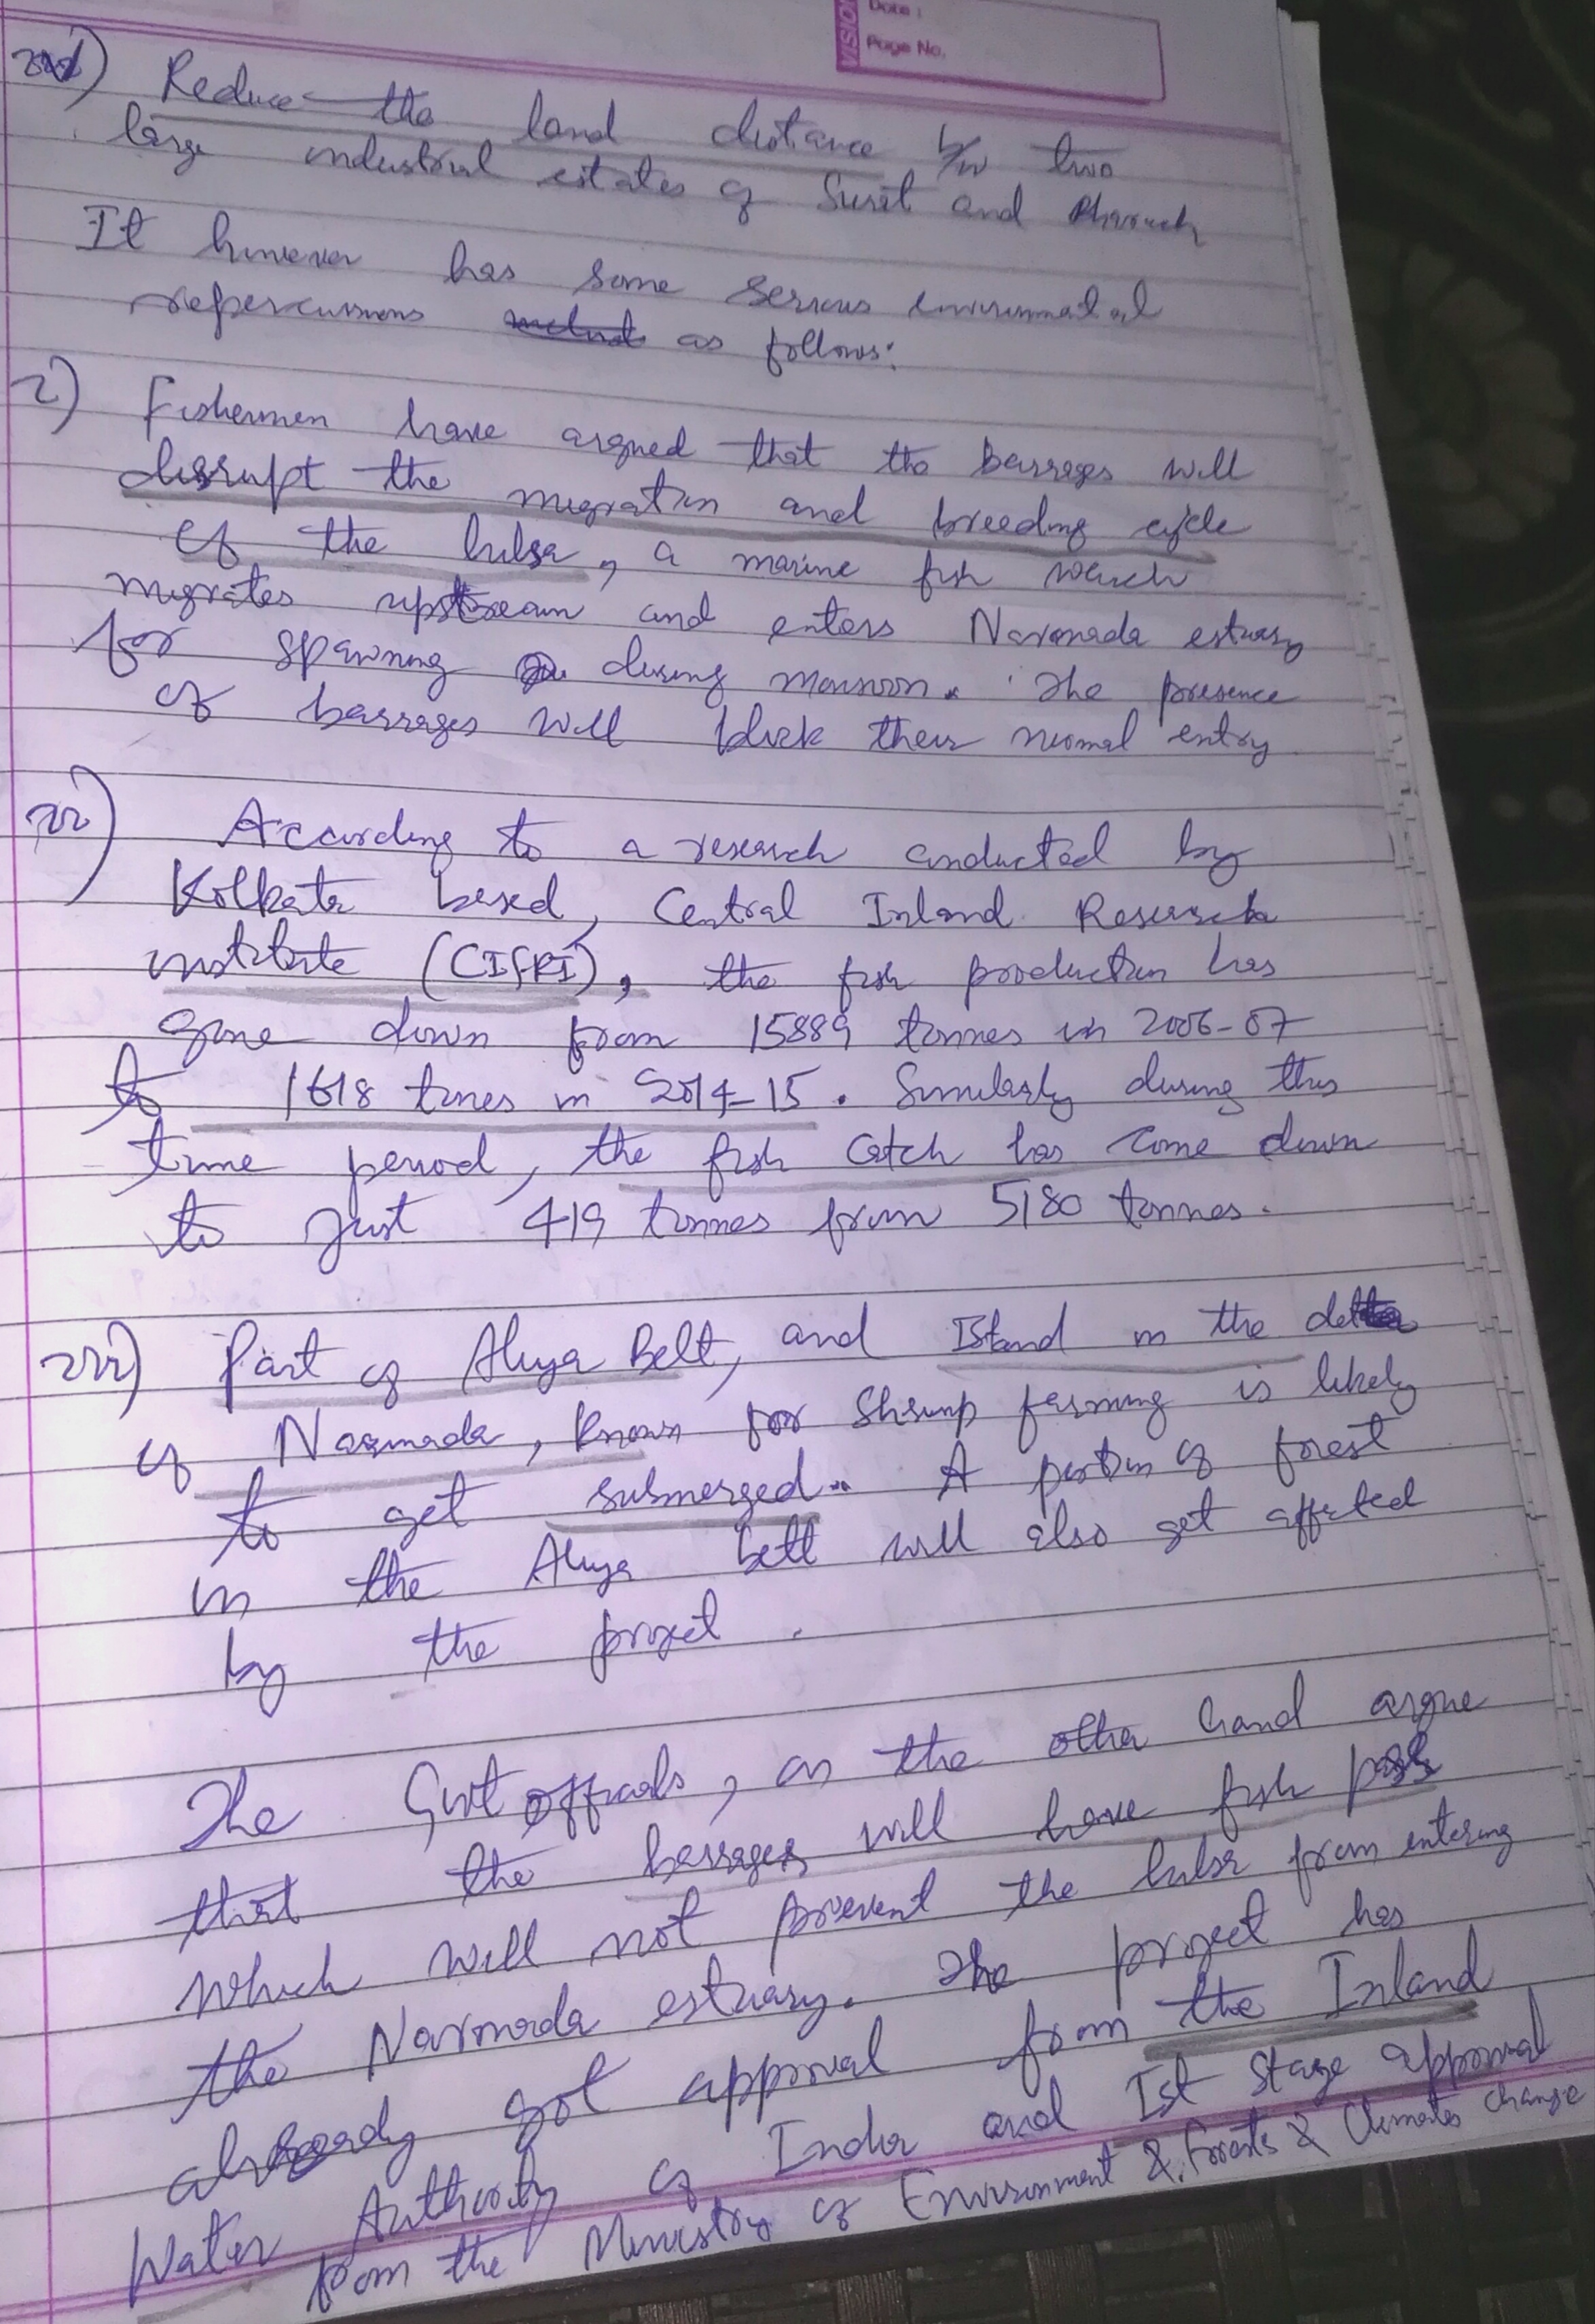 VISION
Date :
Page No.
Reduce the land distance b/w two
large industrial estates of Surat and Bharuch
It however has some serious environmental
repercussions as follows:
i) Fishermen have argued that the barrages will
disrupt the migration and breeding cycle
of the hilsa, a marine fish which
migrates upstream and enters Narmada estuary
for spawning during monsoon. The presence
of barrages will block their normal entry
ii) According to a research conducted by
Kolkata based, Central Inland Research
institute (CIFRI), the fish production has
gone down from 15889 tonnes in 2006-07
to 1618 tones in 2014-15. Similarly during this
time period, the fish catch has come down
to just 419 tonnes from 5180 tonnes.
iii) Part of Aliya Belt, and Island in the delta
of Narmada, known for Shrimp farming is likely
to get submerged. A portion of forest
in the Aliya belt will also get affected
by the project.
The Govt officials, on the other hand argue
that the barrages will have fish pass
which will not prevent the hilsa from entering
the Narmada estuary. The project has
already got approval from the Inland
Water Authority of India and Ist Stage approval
from the Ministry of Environment & Forests & Climate change